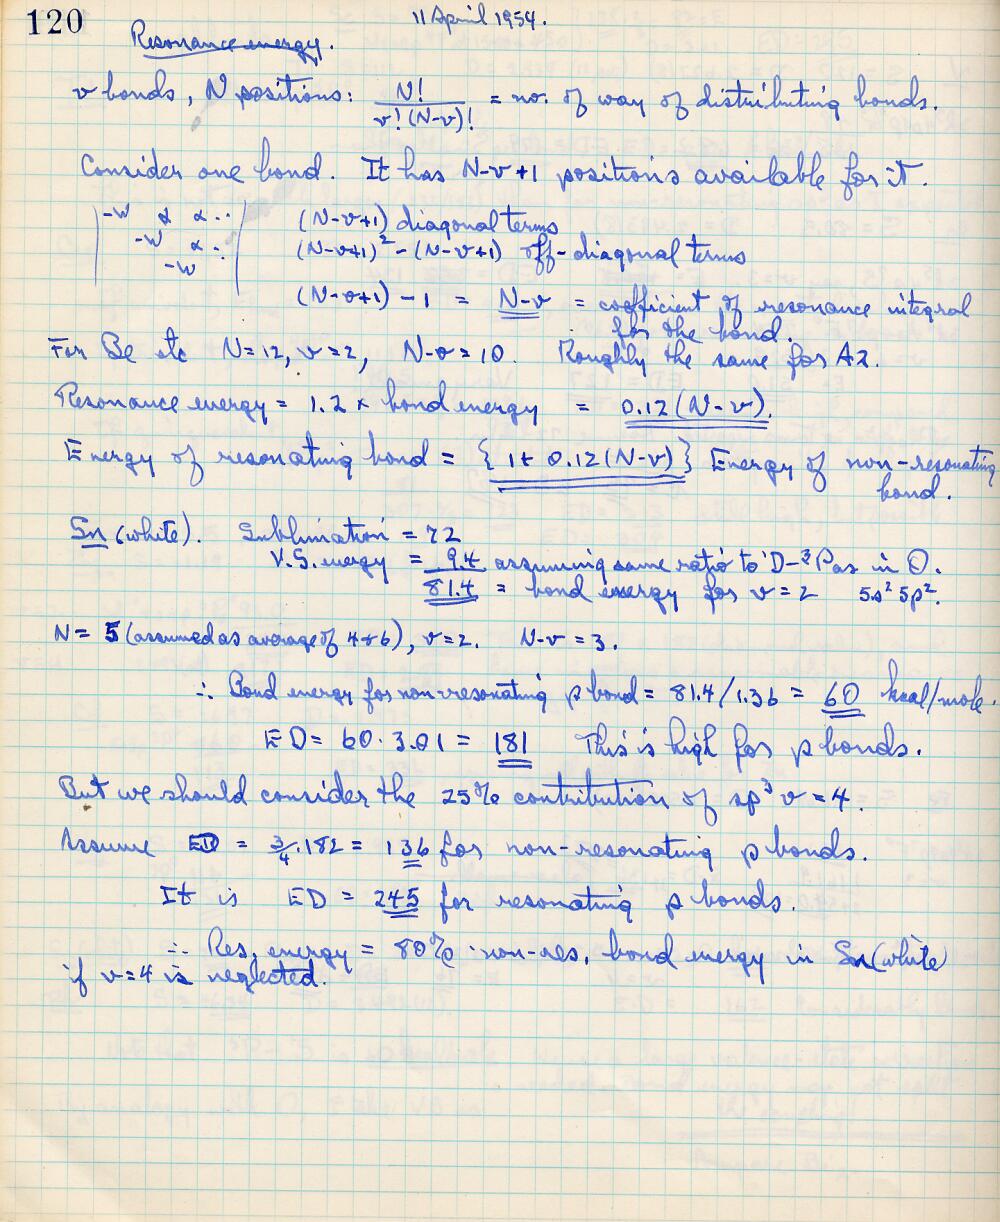 120
11 April 1954.
Resonance energy.
v bonds, N positions: N!/v!(N-v)! = no. of way of distributing bonds.
Consider one bond. It has N-v+1 positions available for it.
-W α α·· (N-v+1) diagonal terms
-W α·· (N-v+1)² - (N-v+1) off-diagonal terms
-W
(N-v+1) - 1 = N-v = coefficient of resonance integral
for the bond.
For Be etc N=12, v=2, N-v=10. Roughly the same for A2.
Resonance energy = 1.2 × bond energy = 0.12(N-v).
Energy of resonating bond = {1+ 0.12(N-v)} Energy of non-resonating
bond.
Sn (white). Sublimation = 72
V.S. energy = 9.4 assuming same ratio to ¹D-³P as in O.
81.4 = bond energy for v=2 5s² 5p².
N = 5 (assumed as average of 4+6), v=2. N-v=3.
∴ Bond energy for non-resonating p bond = 81.4/1.36 = 60 kcal/mole.
ED = 60·3.01 = 181 This is high for p bonds.
But we should consider the 25% contribution of sp³ v=4.
Assume ED = 3/4·182 = 136 for non-resonating p bonds.
It is ED = 245 for resonating p bonds.
∴ Res. energy = 80% non-res. bond energy in Sn(white
if v=4 is neglected.